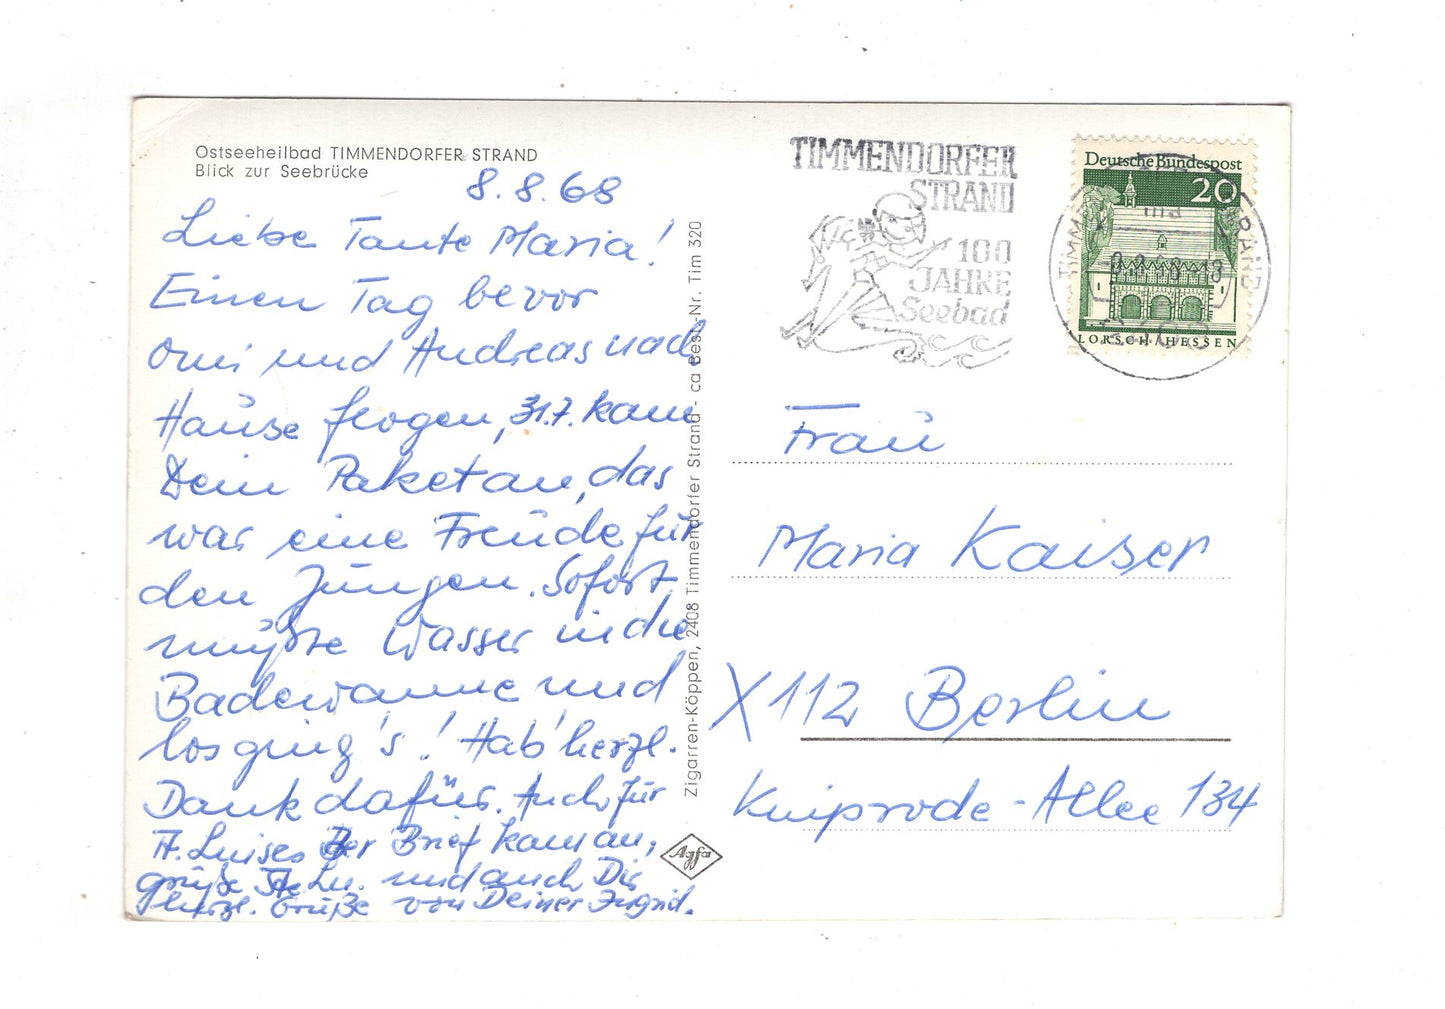 Ostseeheilbad TIMMENDORFER STRAND
Blick zur Seebrücke
8.8.68
Liebe Tante Maria!
Einen Tag bevor
Omi und Andreas nach
Hause flogen, 31.7. kam
Dein Paket an, das
war eine Freude für
den Jungen. Sofort
mußte Wasser in die
Badewanne und
los ging's! Hab' herzl.
Dank dafür. Auch für
Tt. Luises Brief kam an,
grüße Tt. Lu. und auch Dir
herzl. Grüße von Deiner Ingrid.
Zigarren-Köppen, 2408 Timmendorfer Strand - ca Best.-Nr. Tim 320
Agfa
TIMMENDORFER
STRAND
100
JAHRE
Seebad
Deutsche Bundespost
20
LORSCH/HESSEN
Frau
Maria Kaiser
X 112 Berlin
Kniprode-Allee 134